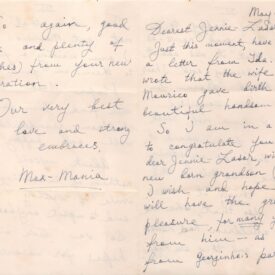 To again, good
s and plenty of
hes) from your new
eration.
Our very best
love and strong
embraces,
Max-Mania
May
Dearest Jennie Lasor
Just this moment, have
a letter from Ida.
wrote that the wife
Mowrico gave birth
beautiful handsom
So I am in a
to congratulate you
dear Jennie Lasor, wi
new born grandson
I wish and hope
will have the gre
pleasure, for many
from him — as
from Georginho's pa